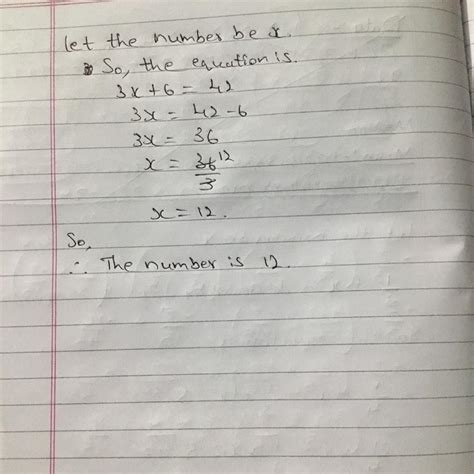 let the number be x.
So, the equation is.
3x + 6 = 42
3x = 42 - 6
3x = 36
x = 36 12
3
x = 12.
So,
∴ The number is 12.